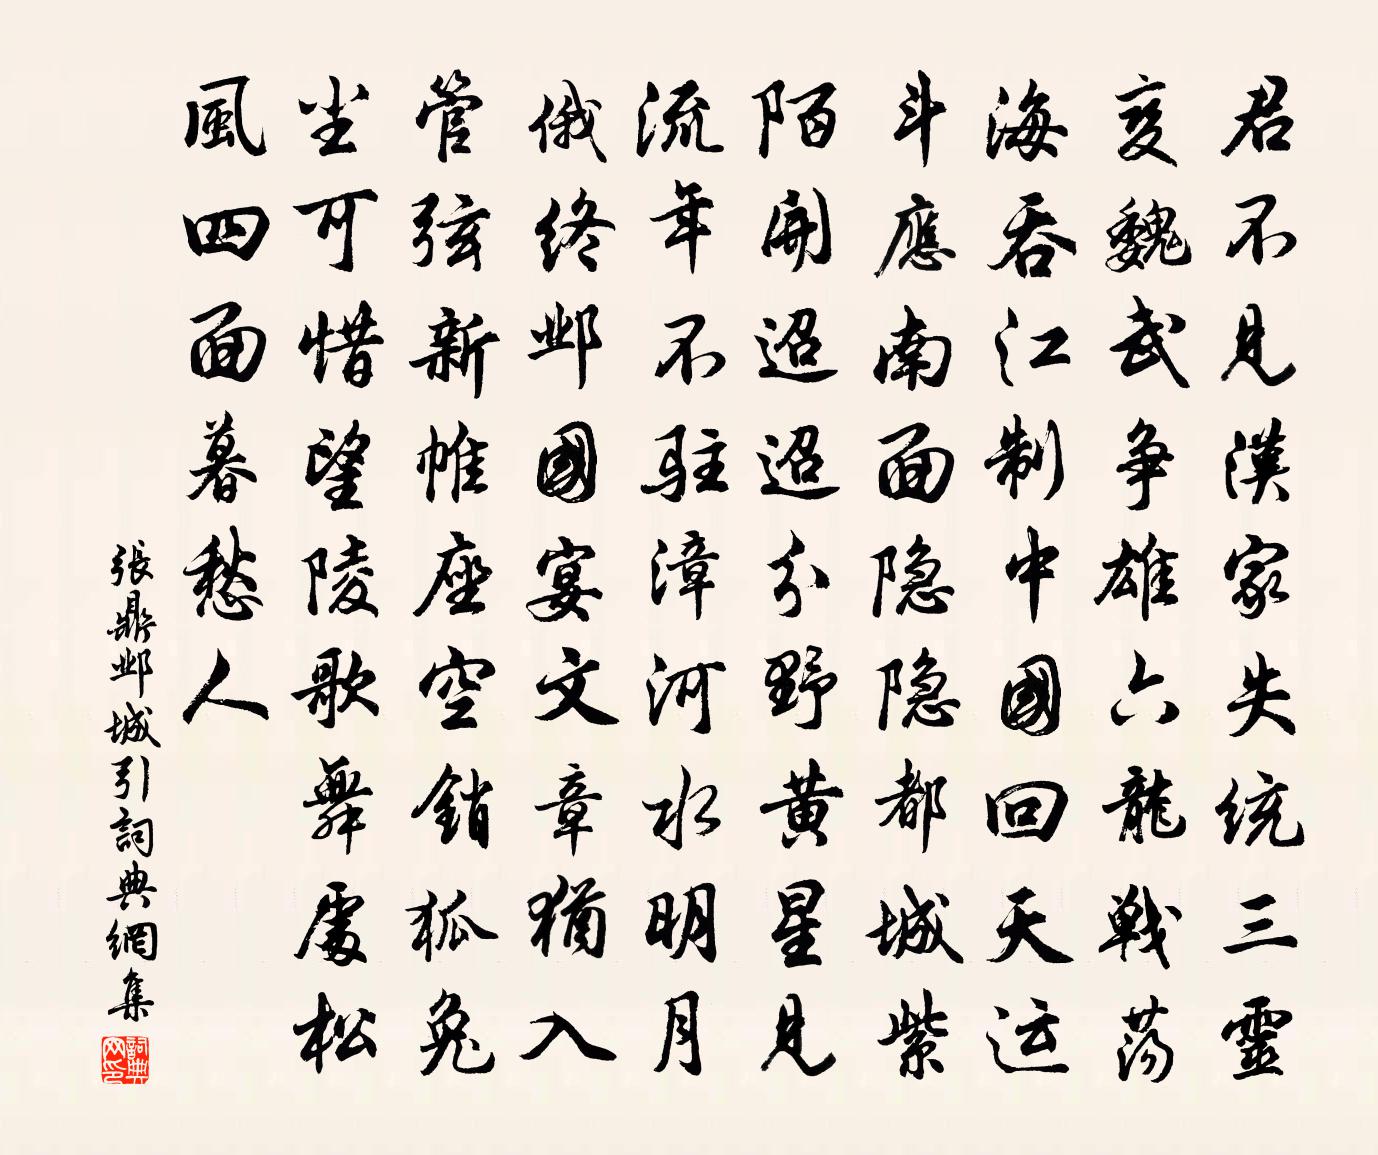 君不見漢家失統三靈
变魏武争雄六龍戦荡
海吞江制中國回天运
斗應南面隐隐都城紫
陌開迢迢分野黄星見
流年不駐漳河水明月
俄终邺國宴文章猶入
管弦新帷座空銷狐兔
尘可惜望陵歌舞處松
風四面暮愁人
張鼎邺城引詞典網集
詞典网印